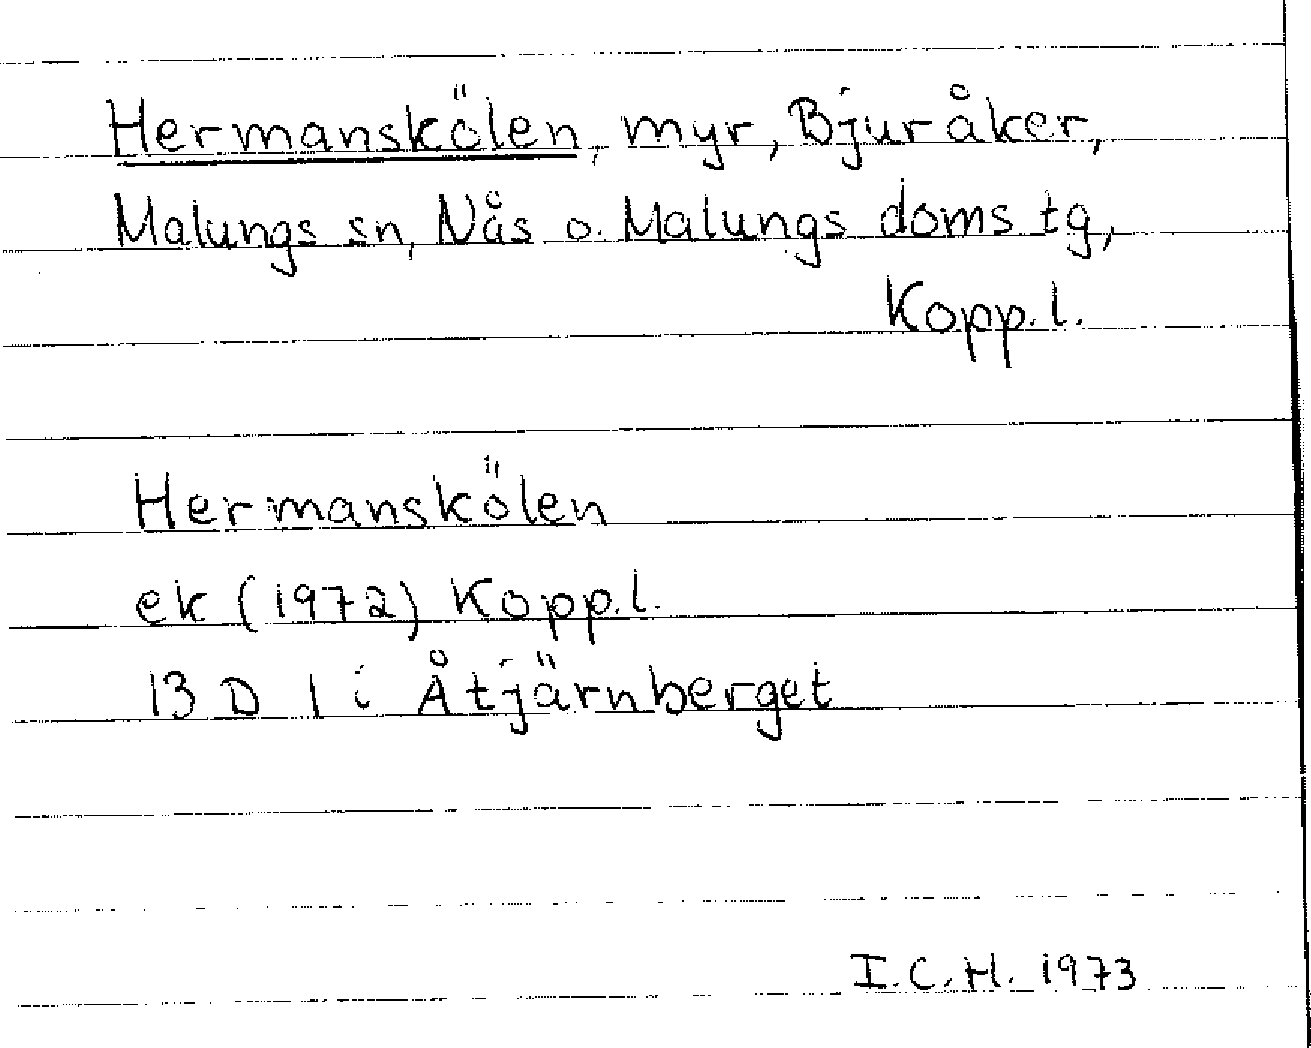 Hermanskölen, myr, Bjuråker,
Malungs sn, Nås o. Malungs doms tg,
Kopp. l.
Hermanskölen
ek (1972) Kopp. l.
13 D 1 i Åtjärnberget
I. C. H. 1973